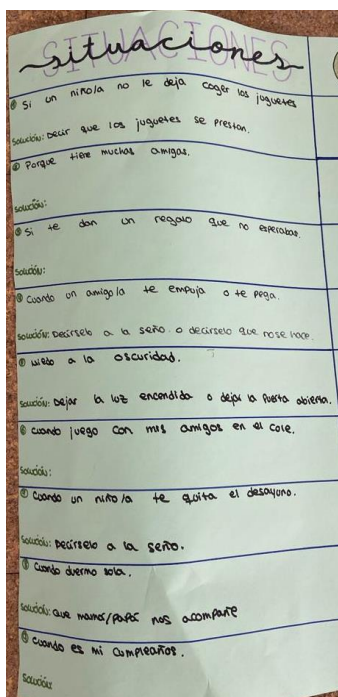 SITUACIONES
situaciones
① Si un niño/a no le deja coger los juguetes
Solución: Decir que los juguetes se prestan.
② Porque tiene muchas amigas.
Solución:
③ Si te dan un regalo que no esperabas.
Solución:
④ Cuando un amigo/a te empuja o te pega.
Solución: Decírselo a la seño. o decírselo que no se hace.
⑤ Miedo a la oscuridad.
Solución: Dejar la luz encendida o dejar la puerta abierta.
⑥ Cuando juego con mis amigos en el cole.
Solución:
⑦ Cuando un niño/a te quita el desayuno.
Solución: Decírselo a la seño.
⑧ Cuando duermo sola.
Solución: Que mamá/papá nos acompañe
⑨ Cuando es mi cumpleaños.
Solución: